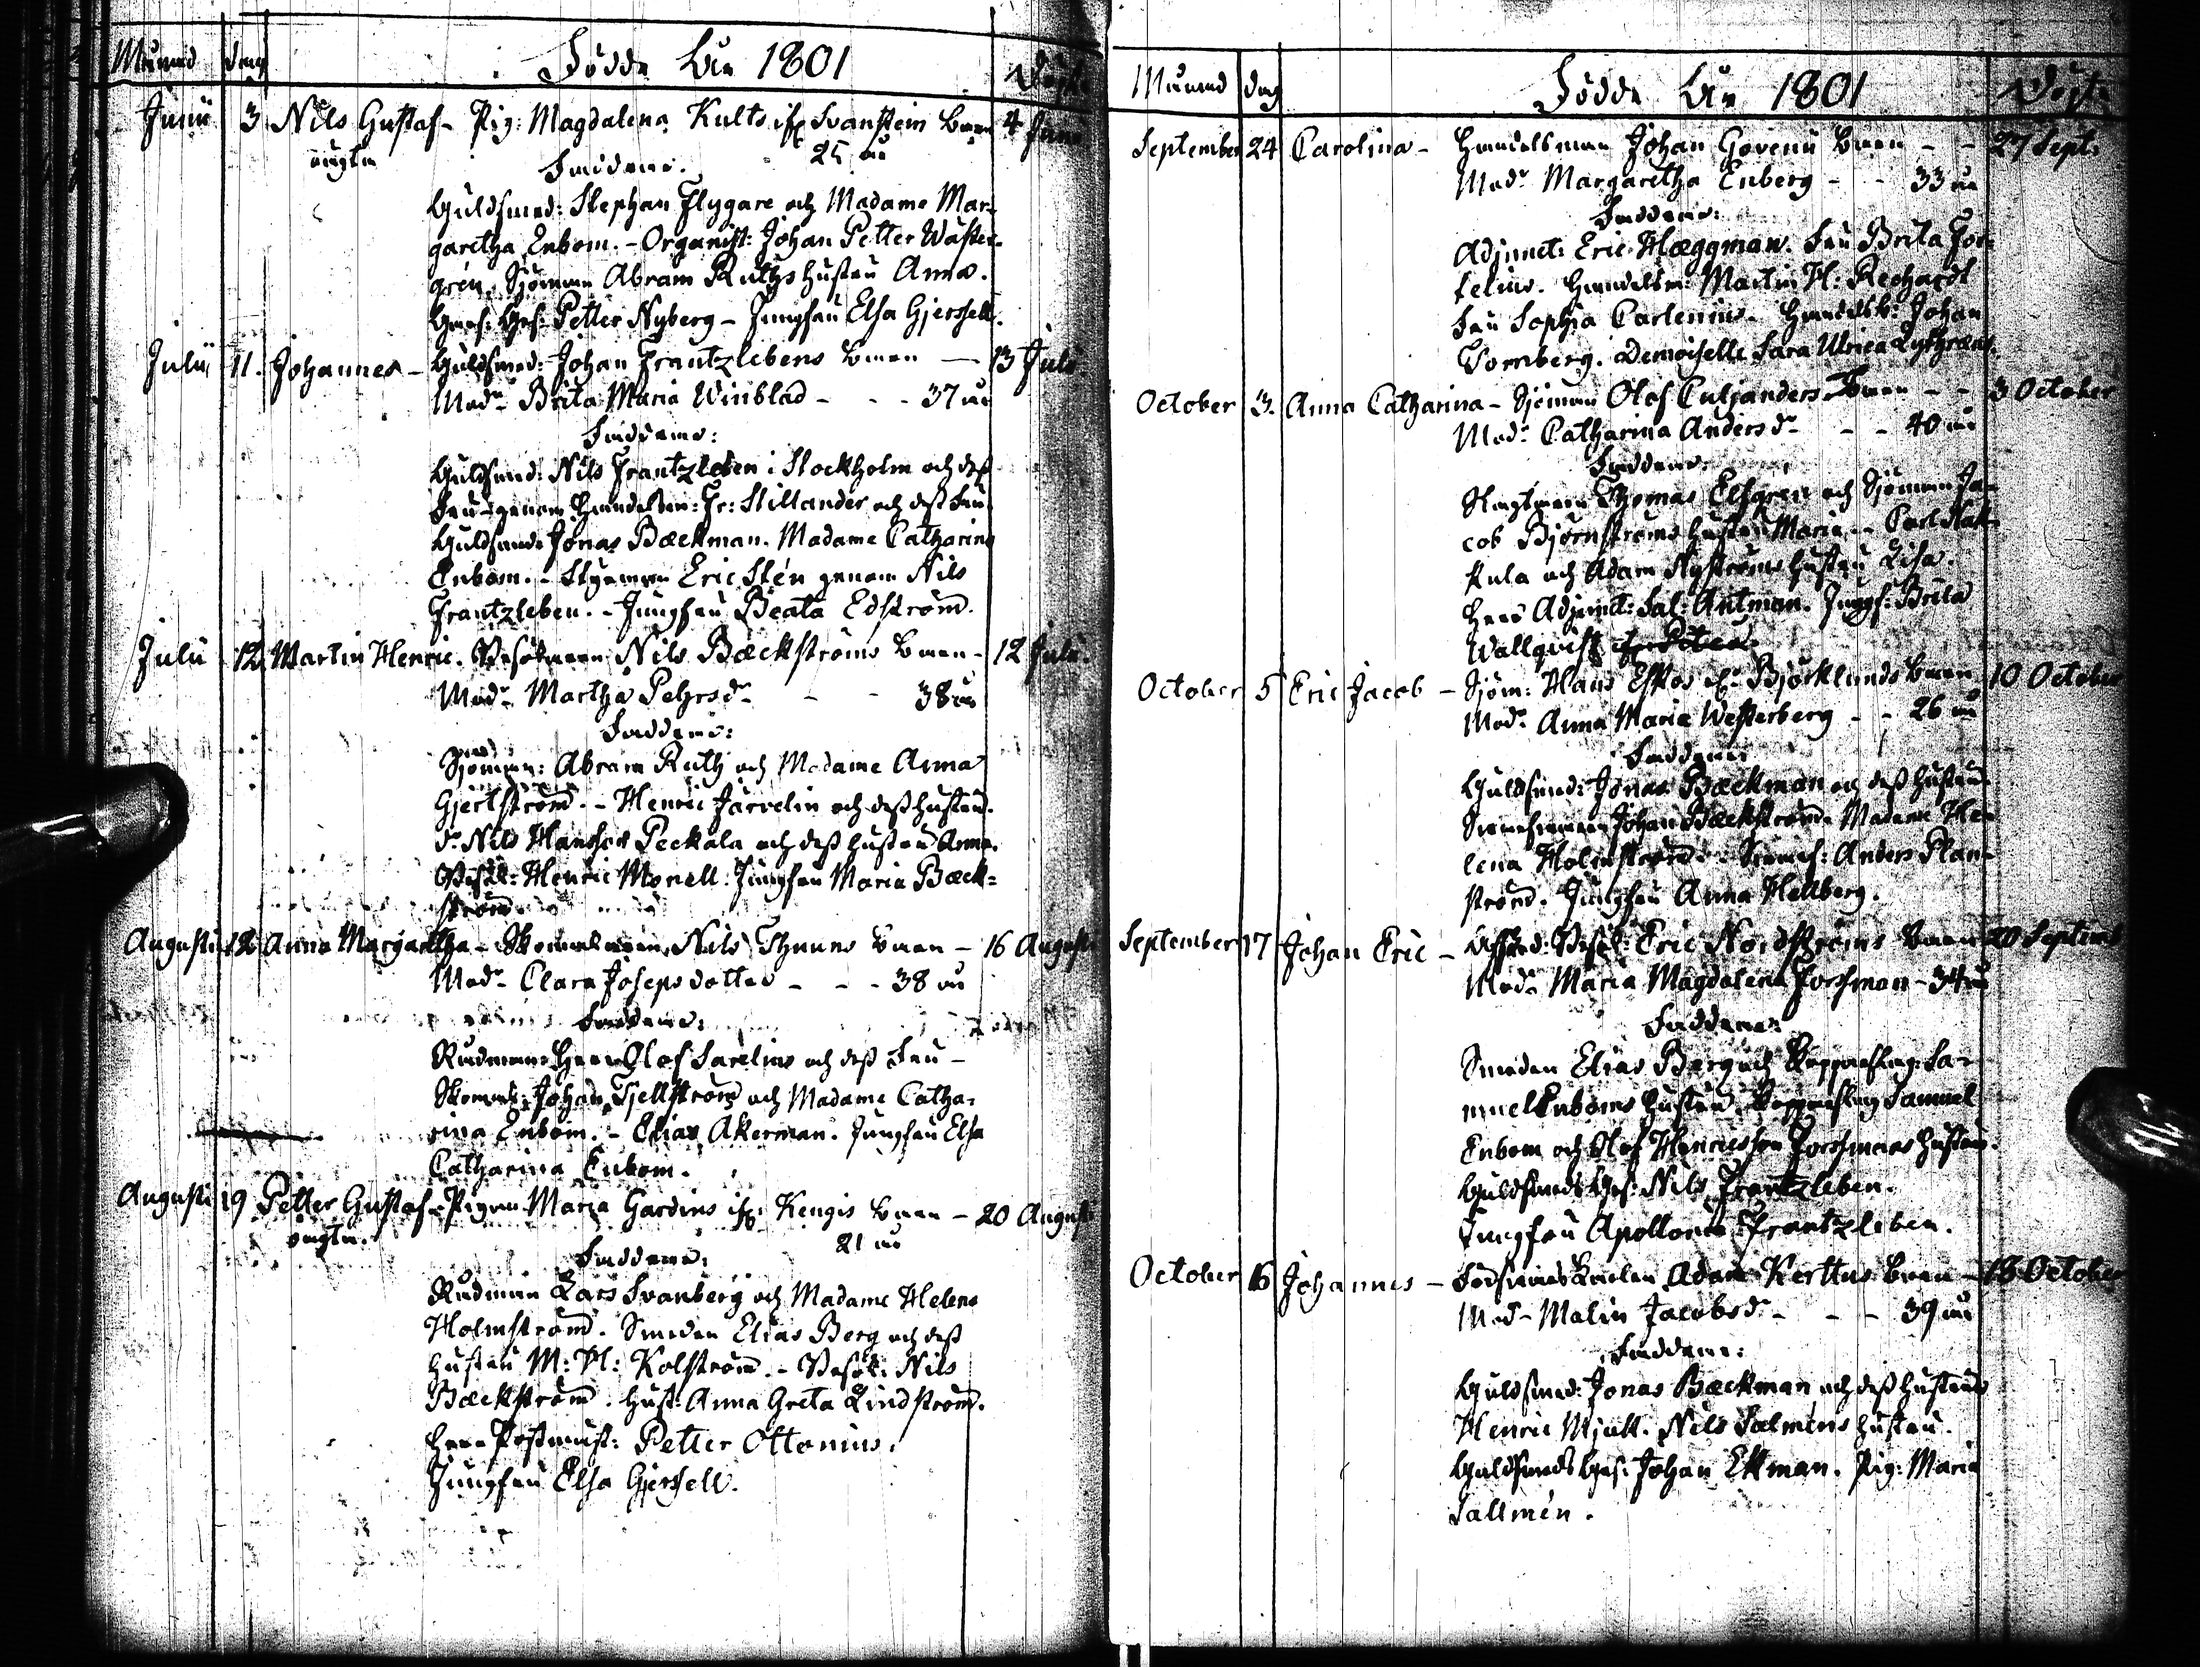 Månad dag Födde År 1801 Döpte
Junii 3 Nils Gustaf - Pig: Magdalena Kults ifr. Svanstein barn 4 Junii
oägta 25 år
Faddrar:
Guldsmed: Stephan Flygare och Madame Mar-
garetha Enbom. - Organist: Johan Petter Wäster-
grén, Sjöman Abram Ruths hustru Anna.
Petter Nyberg - Jungfru Elsa Gjersfell.
Julii 11. Johannes - Guldsmed: Johan Frantzlebens barn - 13 Julii
Modr Brita Maria Winblad - - - 37 år
Faddrar:
Guldsmed: Nils Frantzleben i Stockholm och dess
Fru genom Handelsm: Fr: Stillander och dess Fru
Guldsmed: Jonas Bæckman. Madame Catharina
Enbom. - Styrman Eric Stén genom Nils
Frantzleben. - Jungfru Beata Edström.
Julii 12. Martin Henric. Besökaren Nils Bæckströms barn - 12 Julii.
Modr Martha Pehrsdr - - 38 år
Faddrar:
Sjöman: Abram Ruth och Madame Anna
Gjertström. - Henric Järvelin och dess hustru.
dr. Nils Hansson Peckala och dess hustru Anna.
Besök: Henric Monell. Jungfru Maria Bæck=
ström.
Augusti 12. Anna Margaretha - Skomakaren Nils Thuuns barn - 16 Augusti
Modr Clara Josepsdotter - - - 38 år
Faddrar:
Rådman Herr Olof Sarelius och dess Fru -
Skomak: Johan Tjellström och Madame Catha-
rina Enbom. - Elias Åkerman. Jungfru Elsa
Catharina Enbom.
Augusti 19 Petter Gustaf - Pigan Maria Gardins ifr. Kengis barn - 20 Augusti
oägta. 21 år
Faddrar:
Rådman Lars Svanberg och Madame Helena
Holmström. Smeden Elias Berg och dess
hustru M: M: Kolström. - Besök: Nils
Bæckström. hust: Anna Greta Lindström.
Herr Postmäst: Petter Ottonius.
Jungfru Elsa Gjersfell.
Månad dag Födde År 1801 Döpte
September 24 Carolina - Handelsman Johan Govenii barn - - 27 Sept:
Modr Margaretha Enberg - - 33 år
Faddrar:
Adjunct: Eric Hæggman. Fru Brita For-
telius. Handelsm: Martin H: Rechardt
Fru Sophia Carlenius. Handelsb: Johan
Tornberg. Demoiselle Sara Ulrica
October 3. Anna Catharina - Sjöman Olof barn - - 3 October
Modr Catharina Andersdr - - 40 år
Faddrar:
Thomas Elfgren och Sjöman Ja-
cob Björnströms hustru Maria. - Carl
och Adam Nyströms hustru Lisa.
Herr Adjunct: Sal: Antman. Jungf: Brita
Wallqvist
October 5 Eric Jacob - Sjöm: Hans Björklunds barn 10 October
Modr Anna Maria Westerberg - - 26 år
Faddrar:
Guldsmed: Jonas Bæckman och dess hustru
Johan Bæckström. Madame He-
lena Holmström. Anders Plan-
ström. Jungfru Anna Hellberg.
September 17 Johan Eric - Besök: Eric Nordströms barn 20 Septemb
Modr Maria Magdalena Forsman - 34 år
Faddrar:
Smeden Elias Berg och Kopparslag: Sa-
muel Enboms hustru. Kopparslag Samuel
Enbom och Olof Henricsson Forsmans hustru.
Guldsmeds Ges: Nils Frantzleben.
Jungfru Apollonia Frantzleben.
October 16 Johannes - Adam Kerttus barn - 18 October
Modr Malin Jacobsdr - - - 39 år
Faddrar:
Guldsmed: Jonas Bæckman och dess hustru
Henric Mjuk. Nils Salmins hustru.
Guldsmeds Ges: Johan Ekman. Pig: Maria
Sallmén.